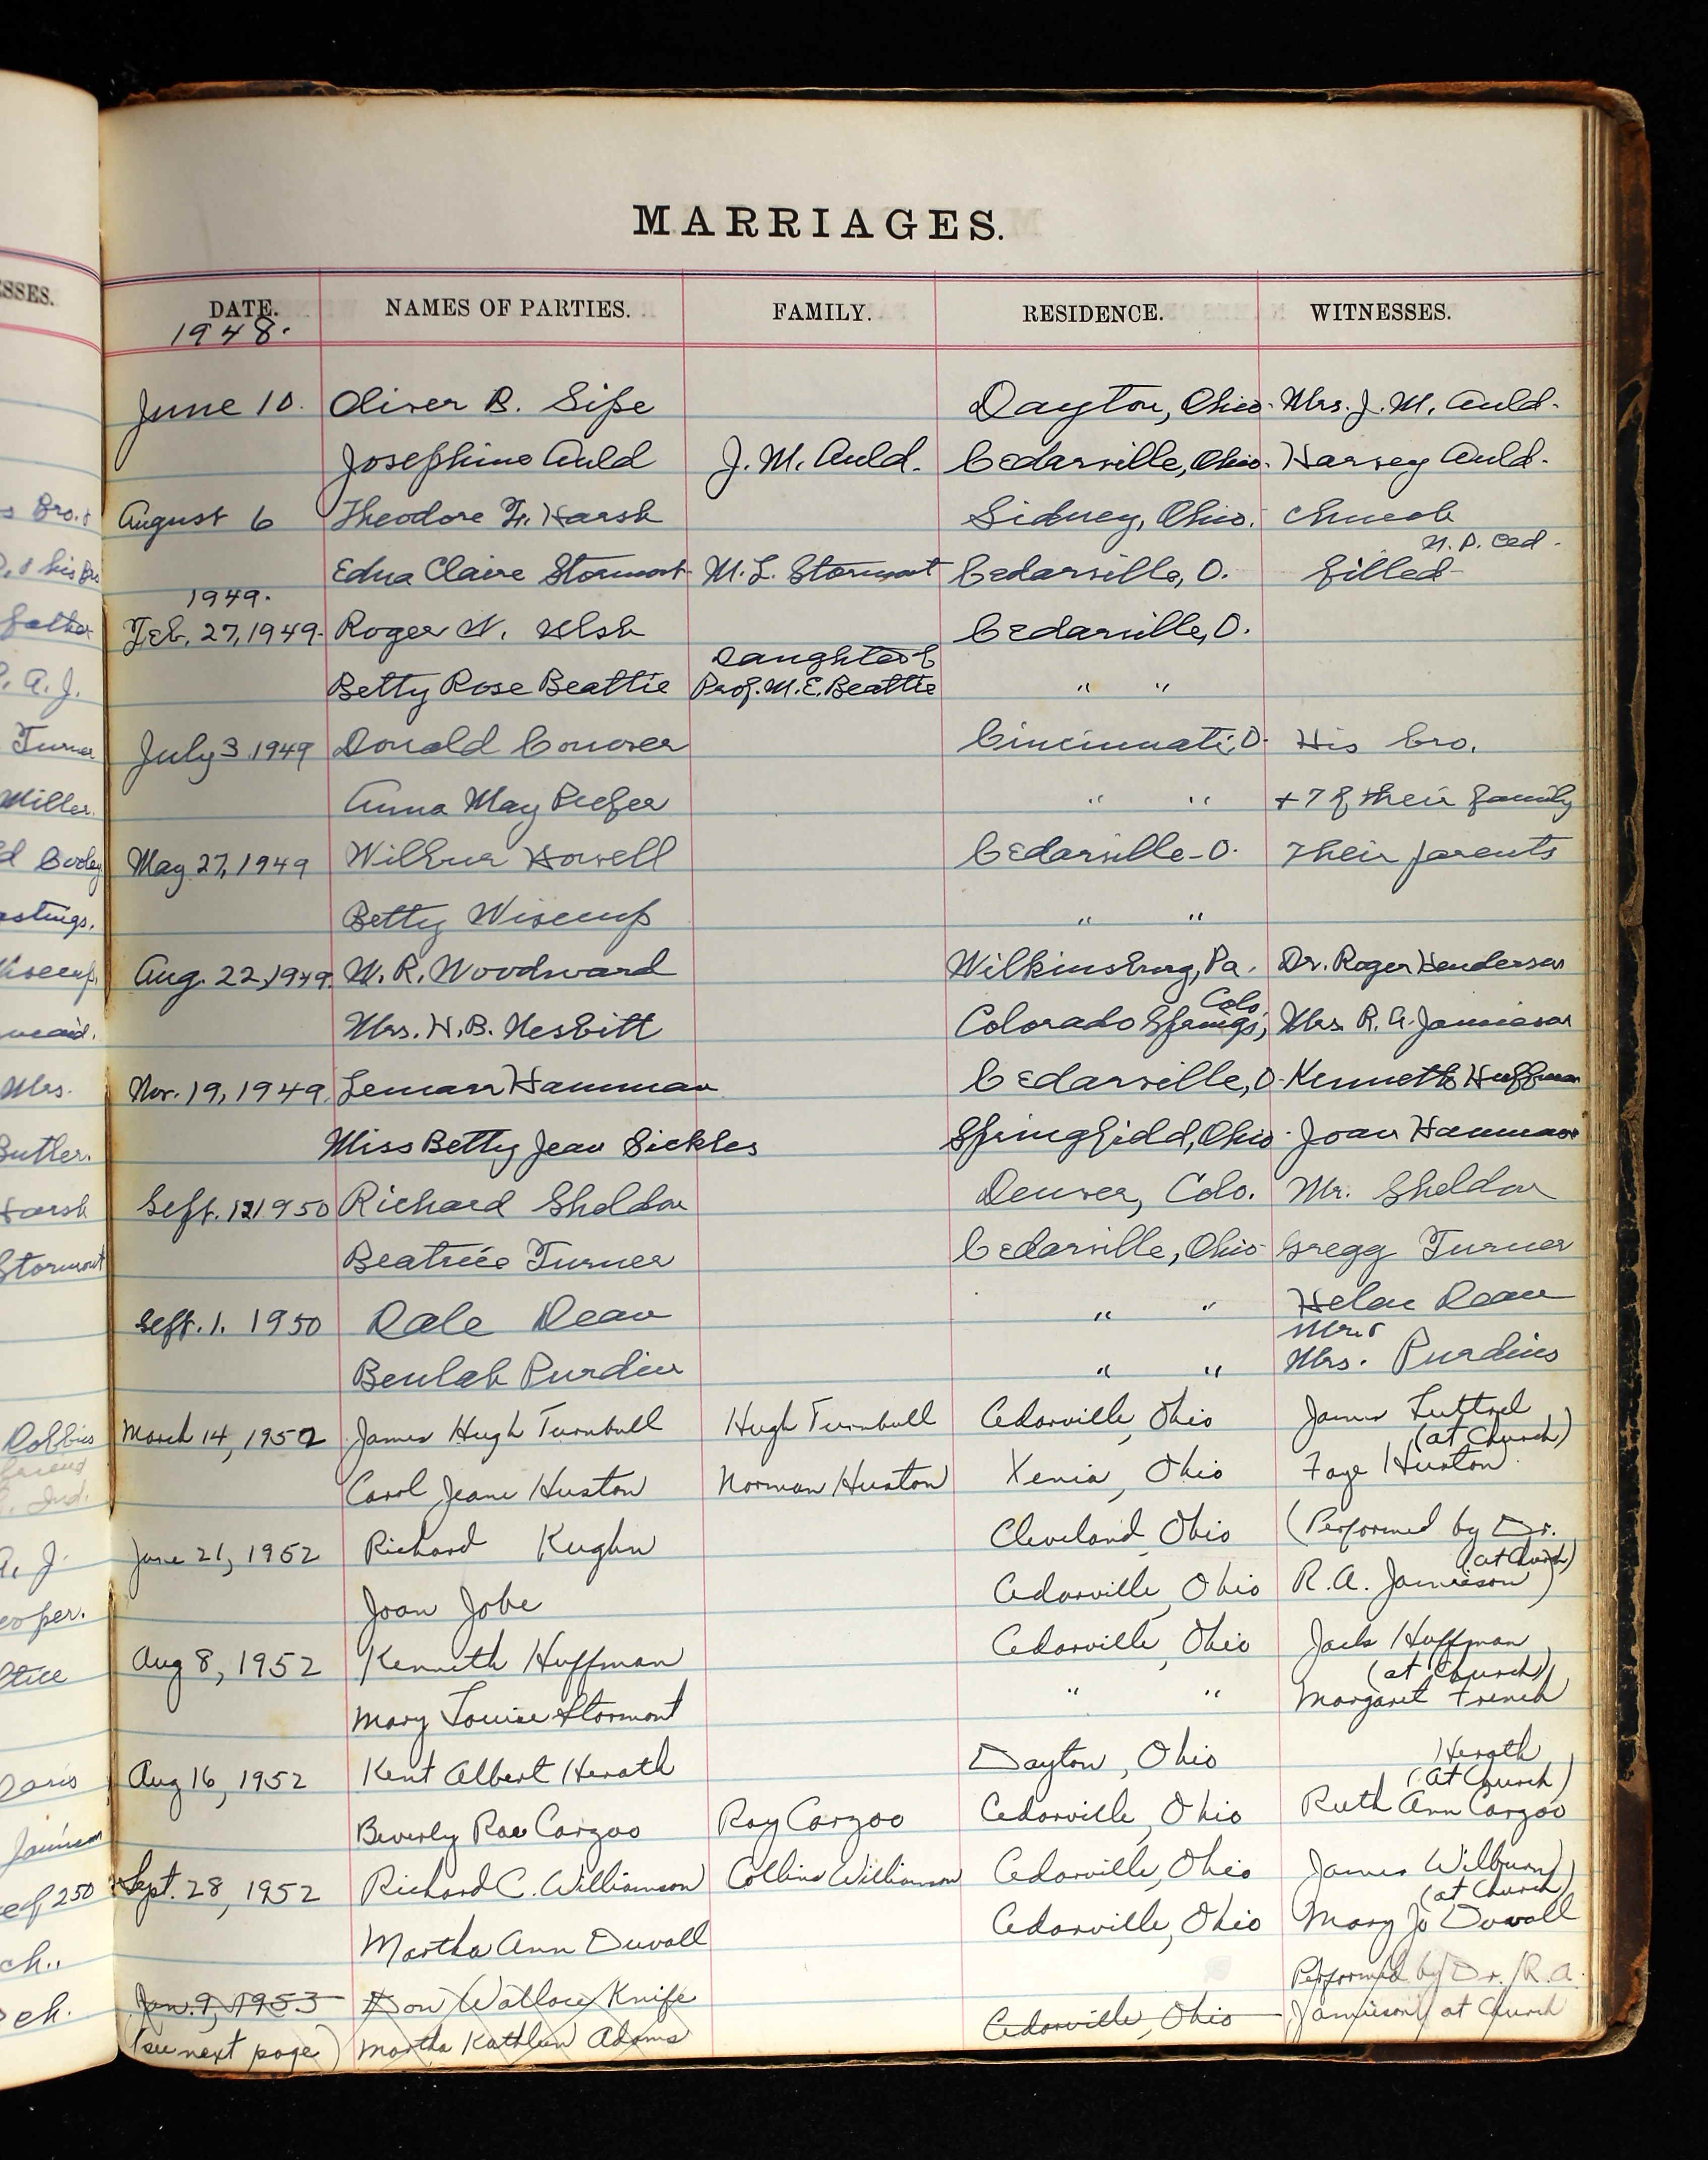 MARRIAGES.
ESSES.
DATE. NAMES OF PARTIES. FAMILY. RESIDENCE. WITNESSES.
1948.
June 10. Oliver B. Sipe Dayton, Ohio. Mrs. J. M. Auld.
Josephine Auld J. M. Auld. Cedarville, Ohio. Harvey Auld.
August 6 Theodore F. Harsh Sidney, Ohio. Church
U. P. Ced.
Edna Claire Stormont M. L. Stormont Cedarville, O. filled
1949.
Feb. 27, 1949. Roger W. Ulsh Cedarville, O.
Daughter of
Betty Rose Beattie Prof. M. E. Beattie " "
July 3 1949 Donald Conover Cincinnati, O. His bro.
Anna May Piefer " " + 7 of their family
May 27, 1949 Wilbur Howell Cedarville - O. Their parents
Betty Wisecup " "
Aug. 22, 1949. W. R. Woodward Wilkinsburg, Pa. Dr. Roger Henderson
Colo.
Mrs. H. B. Nesbitt Colorado Springs, Mrs. R. A. Jamieson
Nov. 19, 1949. Lemarr Hamman Cedarville, O. Kenneth Huffman
Miss Betty Jean Sickles Springfield, Ohio. Joan Hamman
Sept. 12 1950 Richard Sheldon Denver, Colo. Mr. Sheldon
Beatrice Turner Cedarville, Ohio Gregg Turner
Sept. 1. 1950 Dale Dean " " Helen Dean
Mr. &
Beulah Purdin " " Mrs. Purdins
March 14, 1952 James Hugh Turnbull Hugh Turnbull Cedarville, Ohio James Luttrel
(at Church)
Carol Jeane Huston Norman Huston Xenia, Ohio Faye Huston
June 21, 1952 Richard Kughn Cleveland, Ohio (Performed by Dr.
(at Church)
Joan Jobe Cedarville, Ohio R. A. Jamieson)
Aug 8, 1952 Kenneth Huffman Cedarville, Ohio Jack Huffman
(at Church)
Mary Louise Stormont " " Margaret French
Aug 16, 1952 Kent Albert Herath Dayton, Ohio Herath
(at Church)
Beverly Rae Corzoo Ray Corzoo Cedarville, Ohio Ruth Ann Corzoo
Sept. 28, 1952 Richard C. Williamson Collins Williamson Cedarville, Ohio James Wilburn
(at Church)
Martha Ann Duvall Cedarville, Ohio Mary Jo Duvall
Jan. 9, 1953 Don Wallace Knife Performed by Dr. R. A.
(see next page) Martha Kathleen Adams Cedarville, Ohio Jamieson at Church